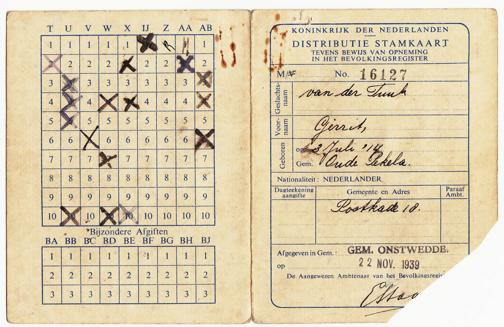 T U V W X IJ Z AA AB
1 1 1 1 1 1 1 1 1
2 2 2 2 2 2 2 2 2
3 3 3 3 3 3 3 3 3
4 4 4 4 4 4 4 4 4
5 5 5 5 5 5 5 5 5
6 6 6 6 6 6 6 6 6
7 7 7 7 7 7 7 7 7
8 8 8 8 8 8 8 8 8
9 9 9 9 9 9 9 9 9
10 10 10 10 10 10 10 10 10
*Bijzondere Afgiften
BA BB BC BD BE BF BG BH BJ
1 1 1 1 1 1 1 1 1
2 2 2 2 2 2 2 2 2
3 3 3 3 3 3 3 3 3
KONINKRIJK DER NEDERLANDEN
DISTRIBUTIE STAMKAART
TEVENS BEWIJS VAN OPNEMING
IN HET BEVOLKINGSREGISTER
No. 16127
Geslachtsnaam
van der Tuuk
Voornaam
Gerrit,
Geboren op 23 Juli '14
Gem. Oude Pekela.
Nationaliteit: NEDERLANDER
Dagteekening aangifte Gemeente en Adres Paraaf Ambt.
Postkade 18.
Afgegeven in Gem.: GEM. ONSTWEDDE.
op 22 NOV. 1939
De Aangewezen Ambtenaar van het Bevolkingsregis